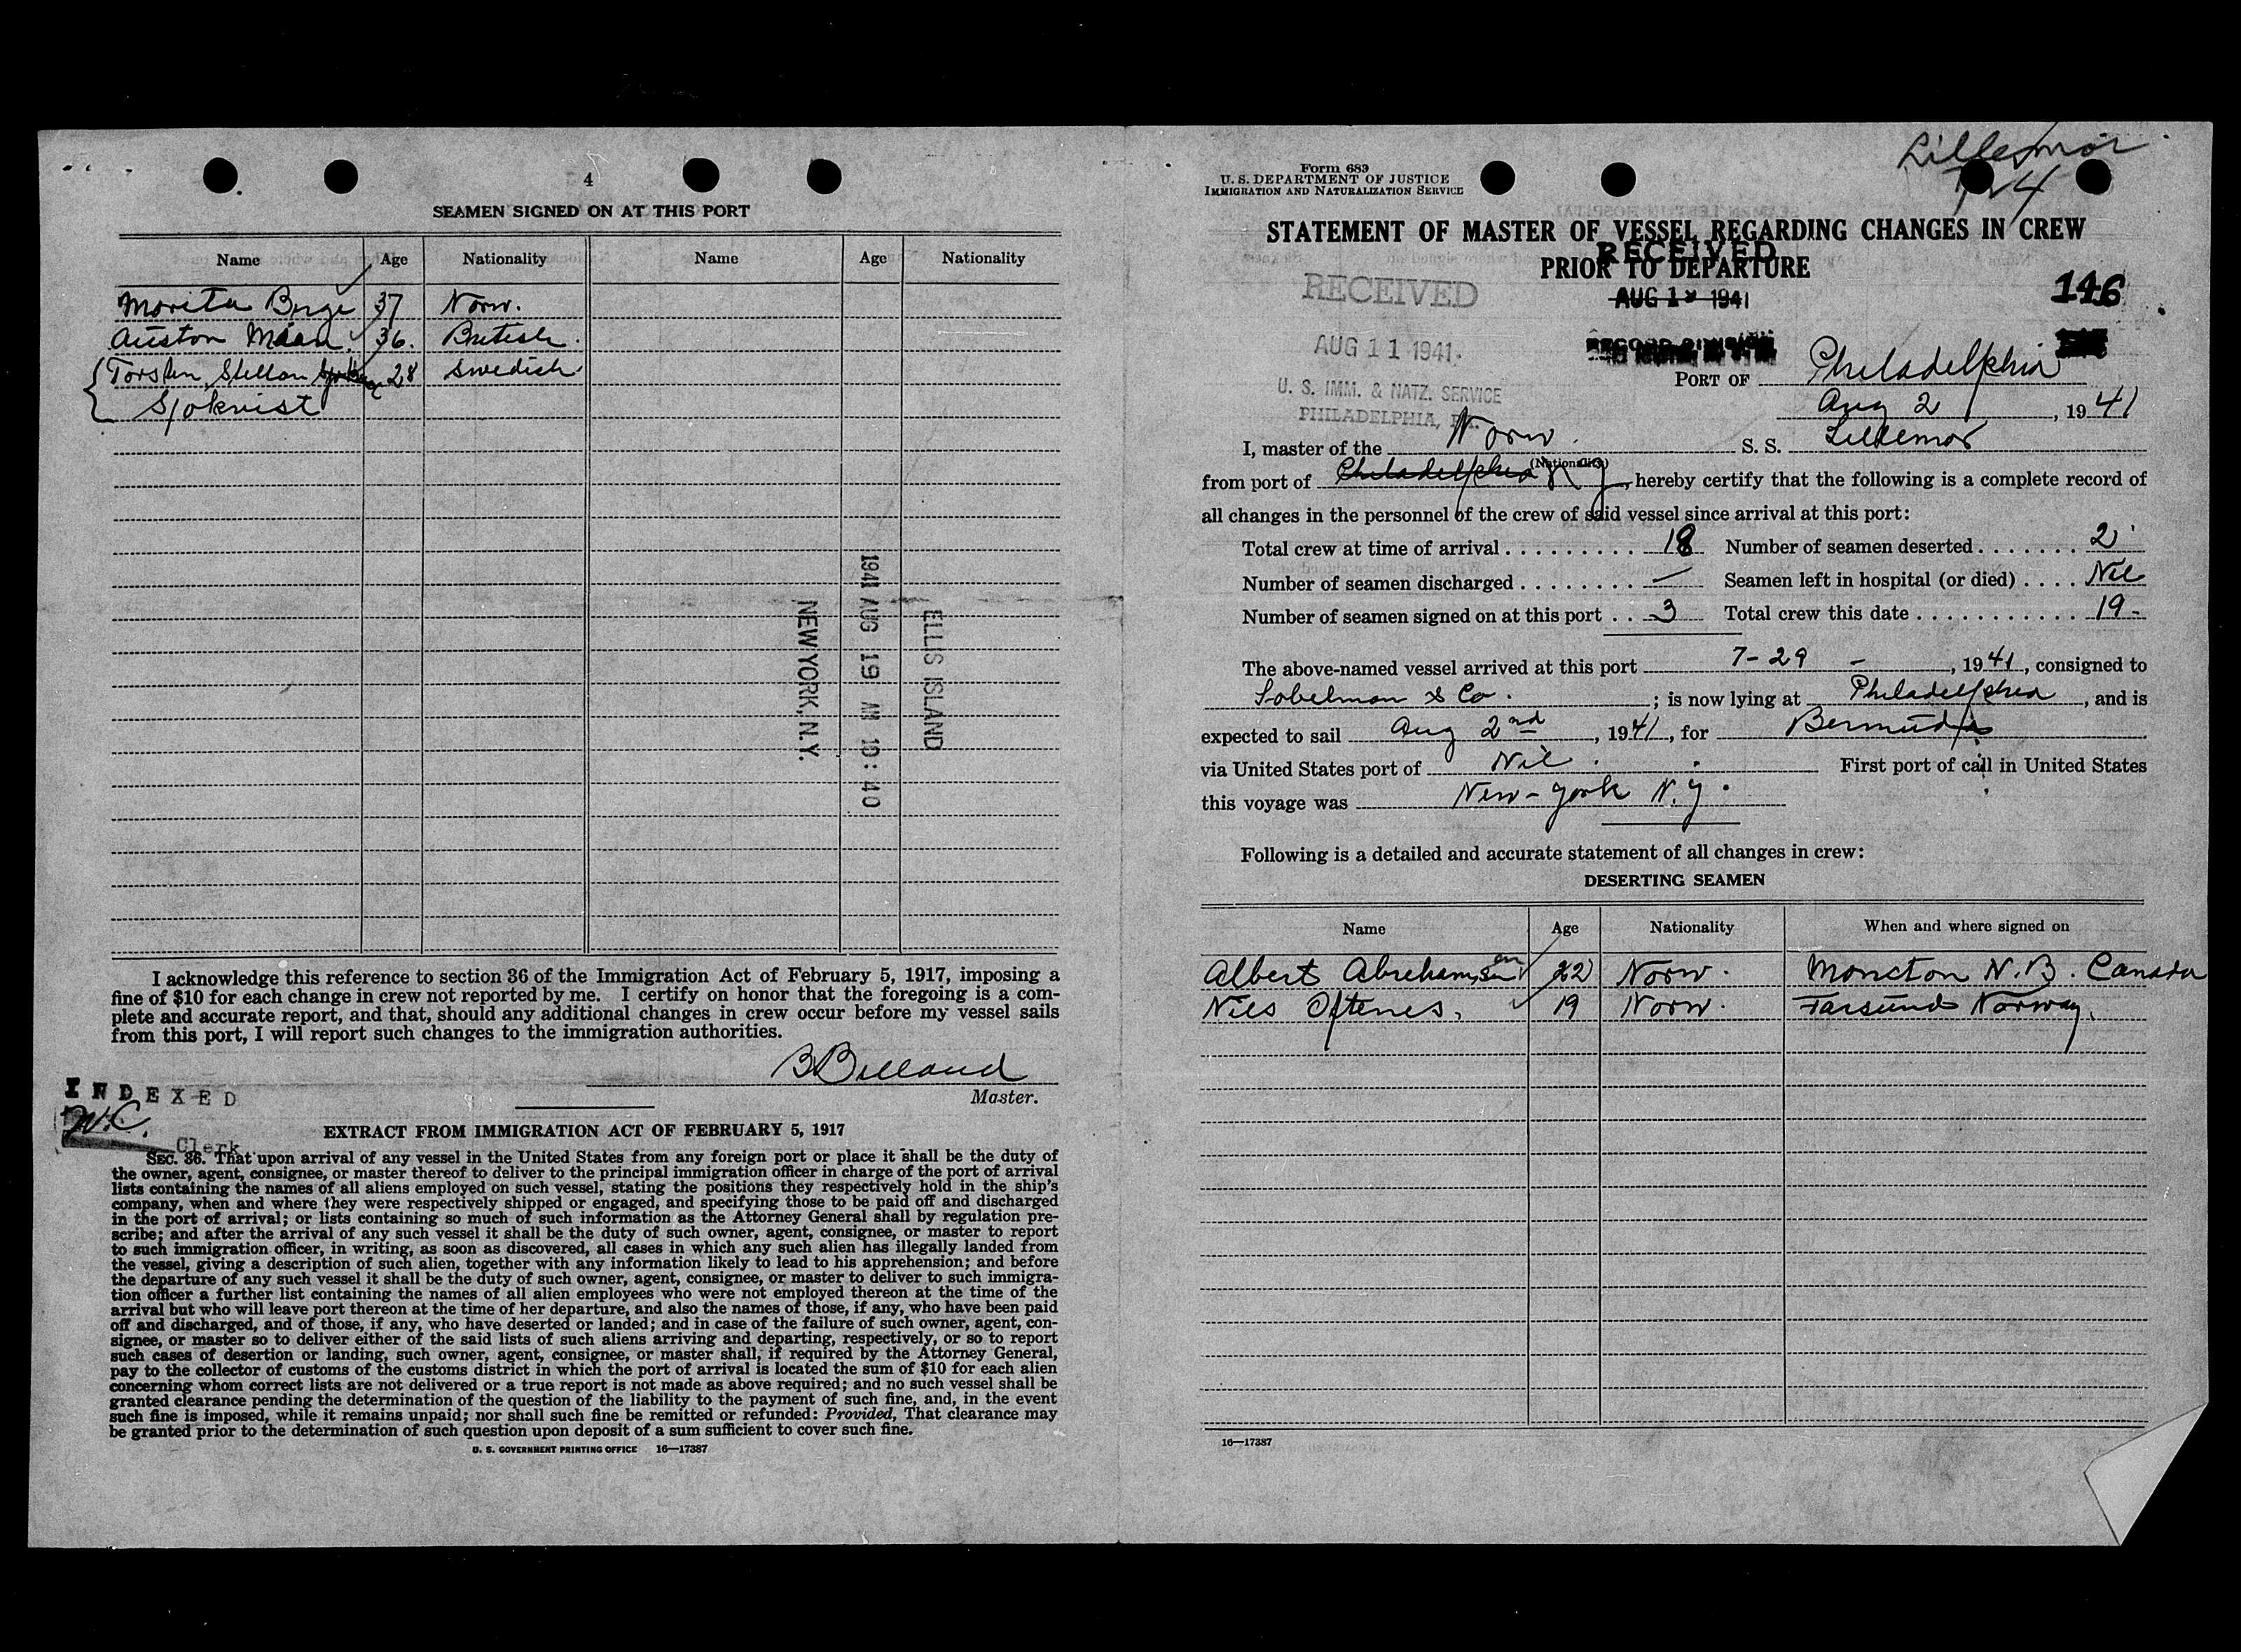 4
SEAMEN SIGNED ON AT THIS PORT
Name Age Nationality Name Age Nationality
37 Norw.
Auston 36. British.
Torsten, Stellan 28 Swedish
Sjokvist
ELLIS ISLAND
1941 AUG 19 AM 10:40
NEW YORK, N.Y.
I acknowledge this reference to section 36 of the Immigration Act of February 5, 1917, imposing a
fine of $10 for each change in crew not reported by me. I certify on honor that the foregoing is a com-
plete and accurate report, and that, should any additional changes in crew occur before my vessel sails
from this port, I will report such changes to the immigration authorities.
Master.
INDEXED
W.C.
Clerk
EXTRACT FROM IMMIGRATION ACT OF FEBRUARY 5, 1917
SEC. 36. That upon arrival of any vessel in the United States from any foreign port or place it shall be the duty of
the owner, agent, consignee, or master thereof to deliver to the principal immigration officer in charge of the port of arrival
lists containing the names of all aliens employed on such vessel, stating the positions they respectively hold in the ship's
company, when and where they were respectively shipped or engaged, and specifying those to be paid off and discharged
in the port of arrival; or lists containing so much of such information as the Attorney General shall by regulation pre-
scribe; and after the arrival of any such vessel it shall be the duty of such owner, agent, consignee, or master to report
to such immigration officer, in writing, as soon as discovered, all cases in which any such alien has illegally landed from
the vessel, giving a description of such alien, together with any information likely to lead to his apprehension; and before
the departure of any such vessel it shall be the duty of such owner, agent, consignee, or master to deliver to such immigra-
tion officer a further list containing the names of all alien employees who were not employed thereon at the time of the
arrival but who will leave port thereon at the time of her departure, and also the names of those, if any, who have been paid
off and discharged, and of those, if any, who have deserted or landed; and in case of the failure of such owner, agent, con-
signee, or master so to deliver either of the said lists of such aliens arriving and departing, respectively, or so to report
such cases of desertion or landing, such owner, agent, consignee, or master shall, if required by the Attorney General,
pay to the collector of customs of the customs district in which the port of arrival is located the sum of $10 for each alien
concerning whom correct lists are not delivered or a true report is not made as above required; and no such vessel shall be
granted clearance pending the determination of the question of the liability to the payment of such fine, and, in the event
such fine is imposed, while it remains unpaid; nor shall such fine be remitted or refunded: Provided, That clearance may
be granted prior to the determination of such question upon deposit of a sum sufficient to cover such fine.
U. S. GOVERNMENT PRINTING OFFICE 16—17387
Lillesmor
Form 689
U. S. DEPARTMENT OF JUSTICE
IMMIGRATION AND NATURALIZATION SERVICE
STATEMENT OF MASTER OF VESSEL REGARDING CHANGES IN CREW
PRIOR TO DEPARTURE
RECEIVED
AUG 1 1941
RECEIVED
AUG 11 1941.
U. S. IMM. & NATZ. SERVICE
PHILADELPHIA, PA.
146
PORT OF Philadelphia
Aug 2, 1941
I, master of the Norw. S. S. Lillemor
(Nationality)
from port of Philadelphia N Y, hereby certify that the following is a complete record of
all changes in the personnel of the crew of said vessel since arrival at this port:
Total crew at time of arrival . . . . . . . . . 18 Number of seamen deserted . . . . . . . 2
Number of seamen discharged . . . . . . . . — Seamen left in hospital (or died) . . . . Nil
Number of seamen signed on at this port . . 3 Total crew this date . . . . . . . . . . . . 19-
The above-named vessel arrived at this port 7-29 -, 1941, consigned to
Sobelman & Co.; is now lying at Philadelphia, and is
expected to sail Aug 2nd, 1941, for Bermuda
via United States port of Nil. First port of call in United States
this voyage was New-York N.Y.
Following is a detailed and accurate statement of all changes in crew:
DESERTING SEAMEN
Name Age Nationality When and where signed on
Albert Abrahamsen 22 Norw. Moncton N.B. Canada
Nils Oftenes. 19 Norw. Farsund Norway.
16—17387